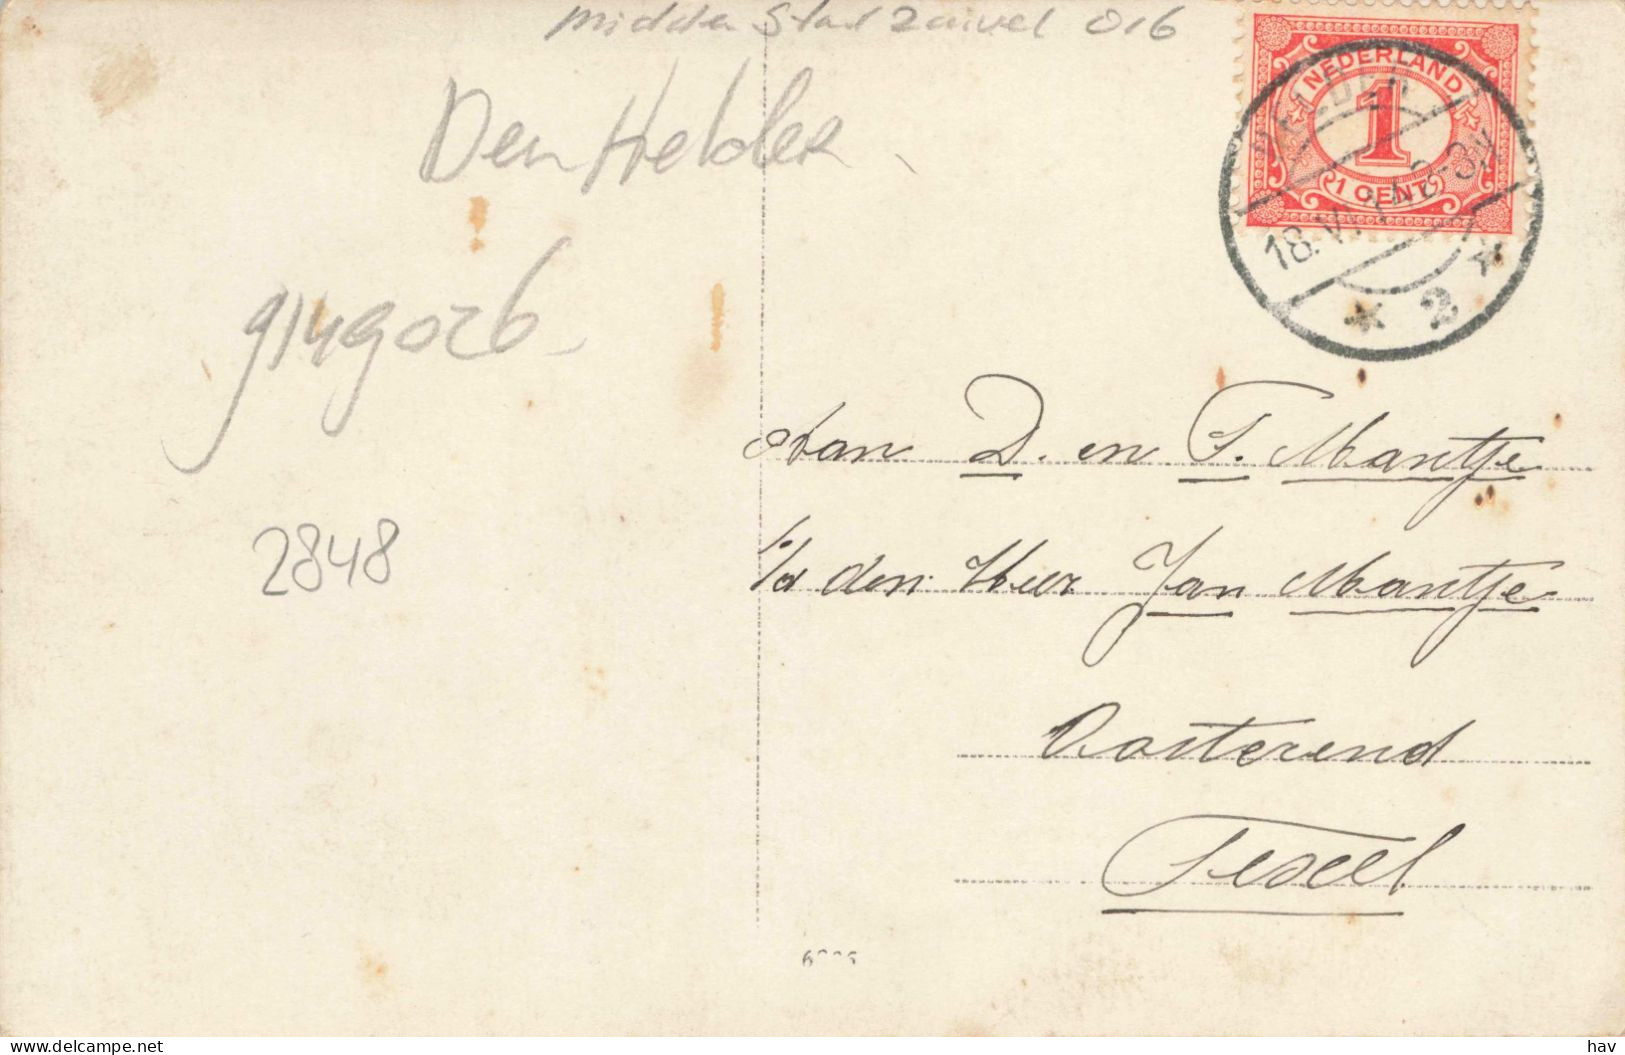 Midden Stad Zuivel 016
Den Helder
NEDERLAND
1
1 CENT
18.VI 2-3N
2
9149026
Aan D. en T. Mantje
p/a den Heer Jan Mantje
2848
Oosterend
Texel
https://www.delcampe.net
hav